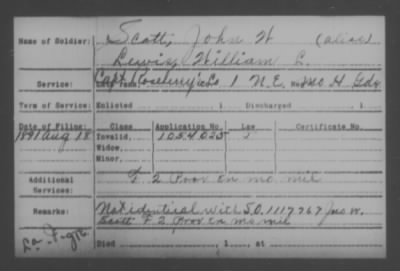 Name of Soldier: Scott, John W (alias)
Lewis, William L.
Service: Capt 1 N.E. Mo H Gds
Term of Service: Enlisted , 1 Discharged , 1
Date of Filing. Class Application No. Law Certificate No.
1891 Aug 18 Invalid, 1054025
Widow,
Minor,
Additional Services: F 2 Prov En mo mil
Remarks: Not identical with S.O. 1117967 Jno W.
Scott F 2 Prov En mo mil
Died , 1 , at